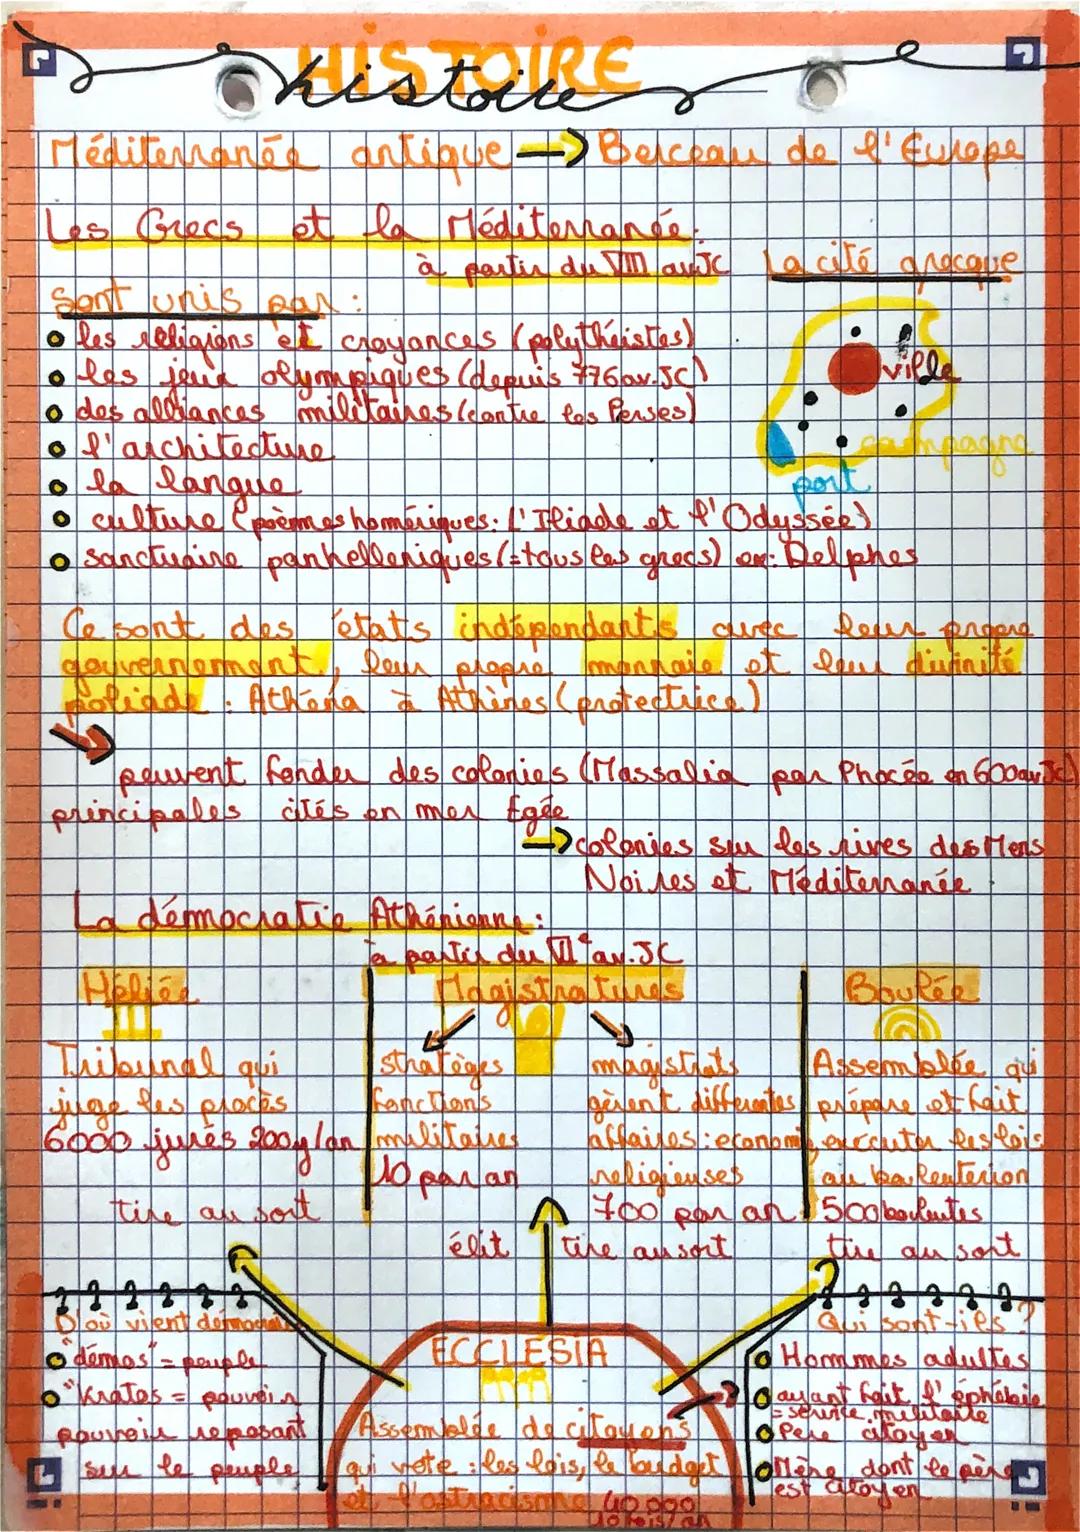 HISTOIRE
histoire
Méditerranée antique → Berceau de l'Europe
Les Grecs et la Méditerranée:
à partir du VIII av JC
La cité grecque
Sont unis par :
les religions et croyances (polythéistes)
les jeux olympiques (depuis 776 av. JC)
des alliances militaires (contre les Perses)
l'architecture
la langue
culture (poèmes homériques: l'Iliade et l'Odyssée)
sanctuaire panhelleniques (= tous les grecs) ex: Delphes
ville
campagne
port
Ce sont des états indépendants avec leur propre
gouvernement, leur propre monnaie et leur divinité
poliade : Athéna à Athènes (protectrice)
peuvent fonder des colonies (Massalia par Phocée en 600 av JC)
principales cités en mer Egée
→ colonies sur les rives des Mers
Noires et Méditerranée
La démocratie Athénienne:
à partir du VIIe av. JC
Héliée
Tribunal qui
juge les procès
6000 jurés 200j/an
tire au sort
Magistratures
stratèges
fonctions
militaires
10 par an
élit
magistrats
gèrent différentes
affaires : economi,
religieuses
700 par an
tire au sort
Boulée
Assemblée qui
prépare et fait
executer les lois
au bouleuterion
500 bouleutes
tire au sort
D'où vient démocratie
"démos" = peuple
"Kratos = pouvoir
pouvoir reposant
sur le peuple
ECCLESIA
Assemblée de citoyens
qui vote : les lois, le budget
et l'ostracisme 40 000
10 fois/an
Qui sont-ils ?
Hommes adultes
ayant fait l'éphébie
= service militaire
Père citoyen
Mère dont le père
est citoyen